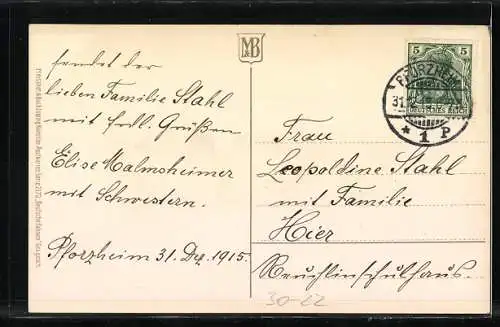 M&B
sendet der
lieben Familie Stahl
mit frdl. Grüßen
Elise Malmsheimer
mit Schwestern.
Pforzheim 31. Dez. 1915.
5 5
DEUTSCHES REICH
PFORZHEIM
31.12.
* 1 P
Frau
Leopoldine Stahl
mit Familie
Hier
Reuchlinschulhaus.
30-22